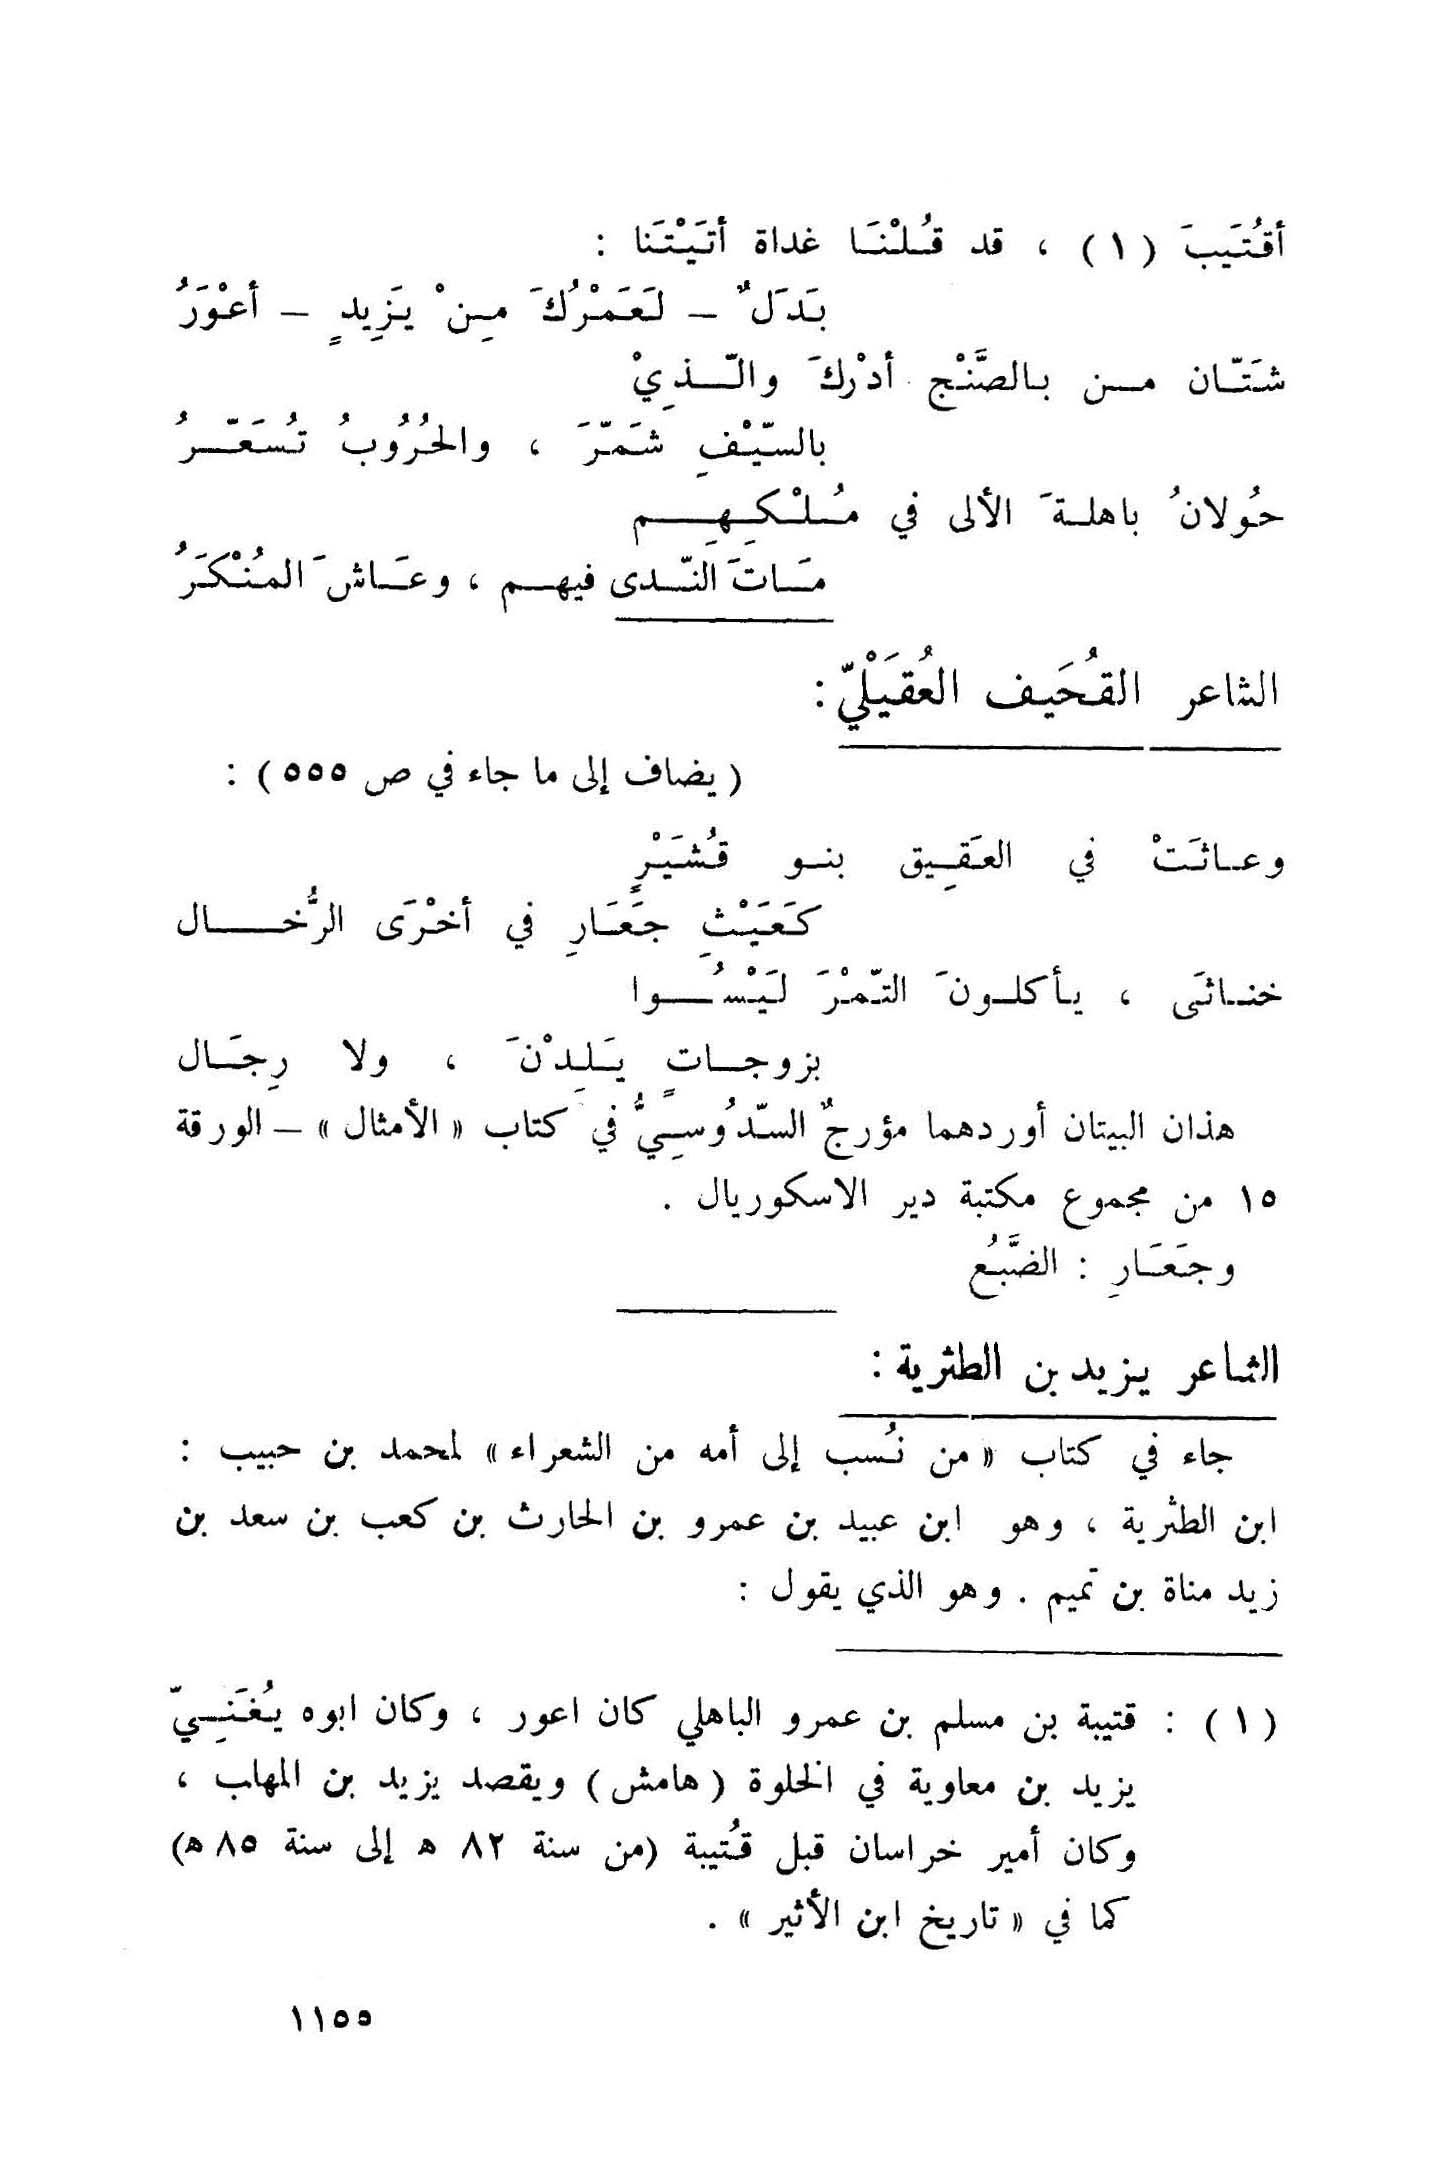 أقُتَيبَ (١) ، قد قُلْنَا غداة أتَيْتَنا :
بَدَلٌ – لَعَمْرُكَ مِنْ يَزِيدٍ – أعْوَرُ
شَتّان من بالصَّنْج أدْركَ والّذِيْ
بالسّيْفِ شَمّرَ ، والحُرُوبُ تُسَعّرُ
حُولانُ باهلةَ الألى في مُلْكِهِم
مَاتَ النّدى فيهم ، وعَاشَ المُنْكَرُ
الشاعر القُحَيف العُقَيْليّ :
( يضاف إلى ما جاء في ص ٥٥٥ ) :
وعاثَتْ في العَقِيق بنو قُشَيْرٍ
كَعَيْثِ جَعَارِ في أخْرَى الرُّخال
خناثَى ، يأكلونَ التّمْرَ لَيْسُوا
بزوجاتٍ يَلِدْنَ ، ولا رِجَال
هذان البيتان أوردهما مؤرجٌ السّدُوسِيُّ في كتاب « الأمثال » – الورقة
١٥ من مجموع مكتبة دير الاسكوريال .
وجَعَارِ : الضَّبُع
الشاعر يزيد بن الطثرية :
جاء في كتاب « من نُسب إلى أمه من الشعراء » لمحمد بن حبيب :
ابن الطثرية ، وهو ابن عبيد بن عمرو بن الحارث بن كعب بن سعد بن
زيد مناة بن تميم . وهو الذي يقول :
(١) : قتيبة بن مسلم بن عمرو الباهلي كان اعور ، وكان ابوه يُغَنِيّ
يزيد بن معاوية في الخلوة ( هامش ) ويقصد يزيد بن المهاب ،
وكان أمير خراسان قبل قُتيبة (من سنة ٨٢ ه إلى سنة ٨٥ ه)
كما في « تاريخ ابن الأثير » .
١١٥٥